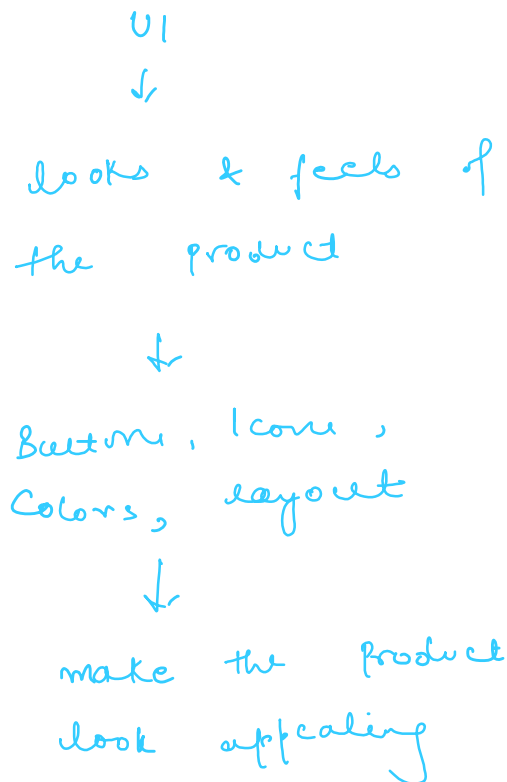 UI
↓
looks & feels of
the product
↓
Buttons, Icons,
Colors, layout
↓
make the product
look appealing